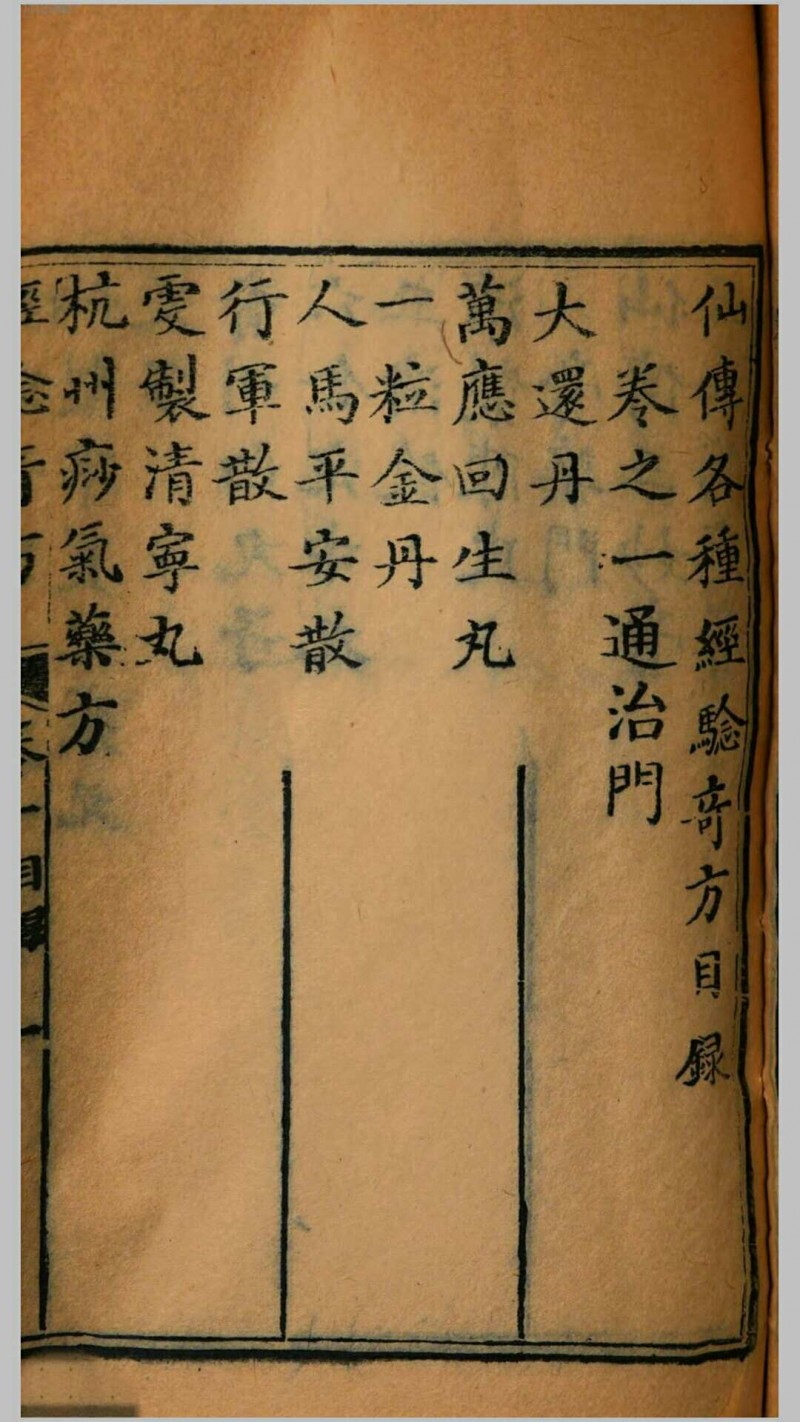 仙傳各種經驗竒方目録
卷之一通治門
大還丹
萬應回生丸
一粒金丹
人馬平安散
行軍散
䨇製清寧丸
杭州痧氣藥方